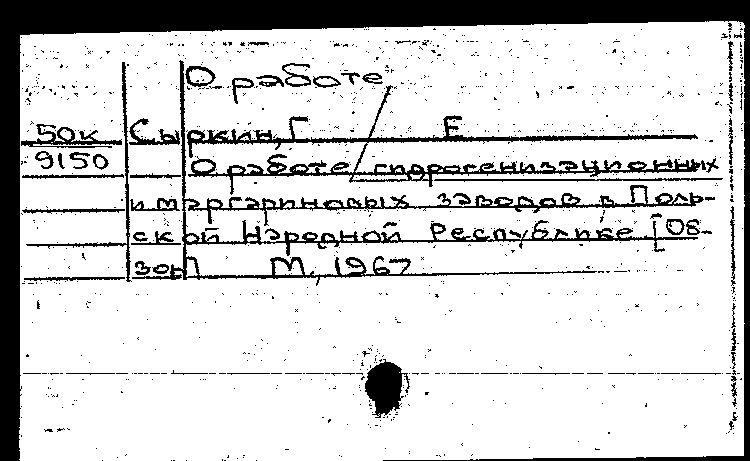 О работе
50к Сыркин, Г Е
9150 О работе гидрогенизационных
и маргариновых заводов в Поль-
ской Народной Республике [Об-
зор] М., 1967